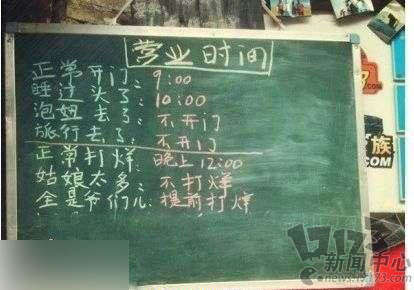 营业时间
正常开门：9:00
睡过头了：10:00
泡妞去了：不开门
旅行去了：不开门
正常打烊：晚上12:00
姑娘太多：不打烊
全是爷们儿：提前打烊
族
.COM
17173
新闻中心
news.17173.com